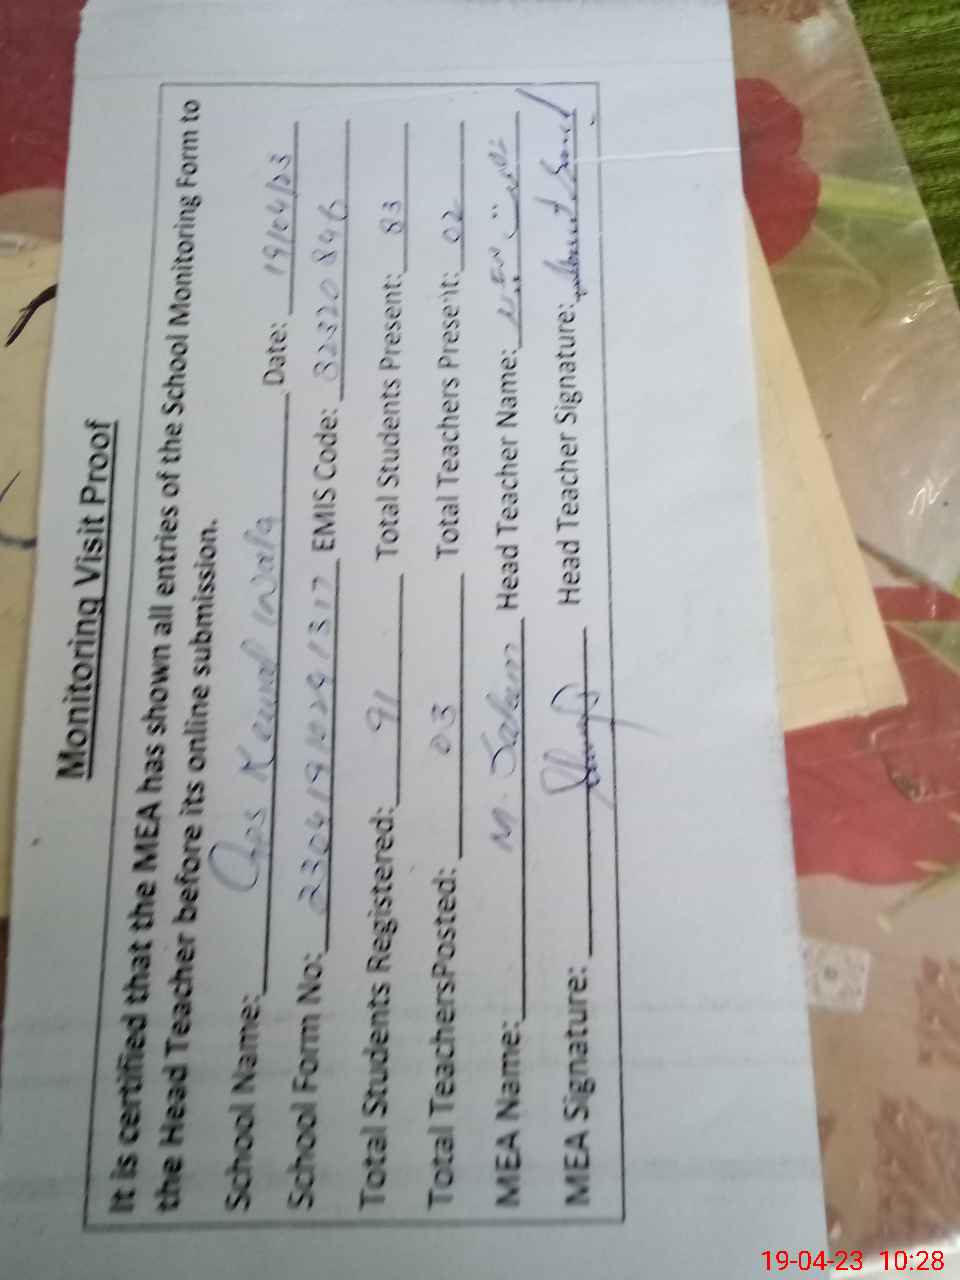 Monitoring Visit Proof
It is certified that the MEA has shown all entries of the School Monitoring Form to
the Head Teacher before its online submission.
School Name: Gps Kamal Wala Date: 19/04/23
School Form No: 230419102491317 EMIS Code: 32320846
Total Students Registered: 91 Total Students Present: 83
Total TeachersPosted: 03 Total Teachers Present: 02
MEA Name: M. Saleem Head Teacher Name:
MEA Signature: Head Teacher Signature:
19-04-23 10:28